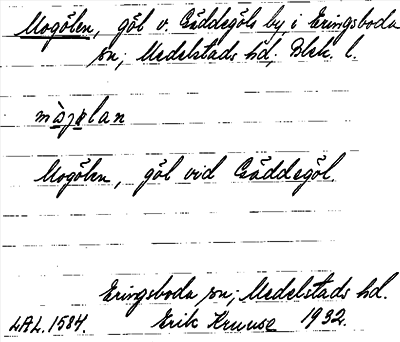 Mogölen, göl v. Gäddegöls by, i Eringsboda
sn; Medelstads hd, Blek. l.
Mogölen, göl vid Gäddegöl.
Eringsboda sn; Medelstads hd.
LAL. 1584. Erik Kruuse 1932.